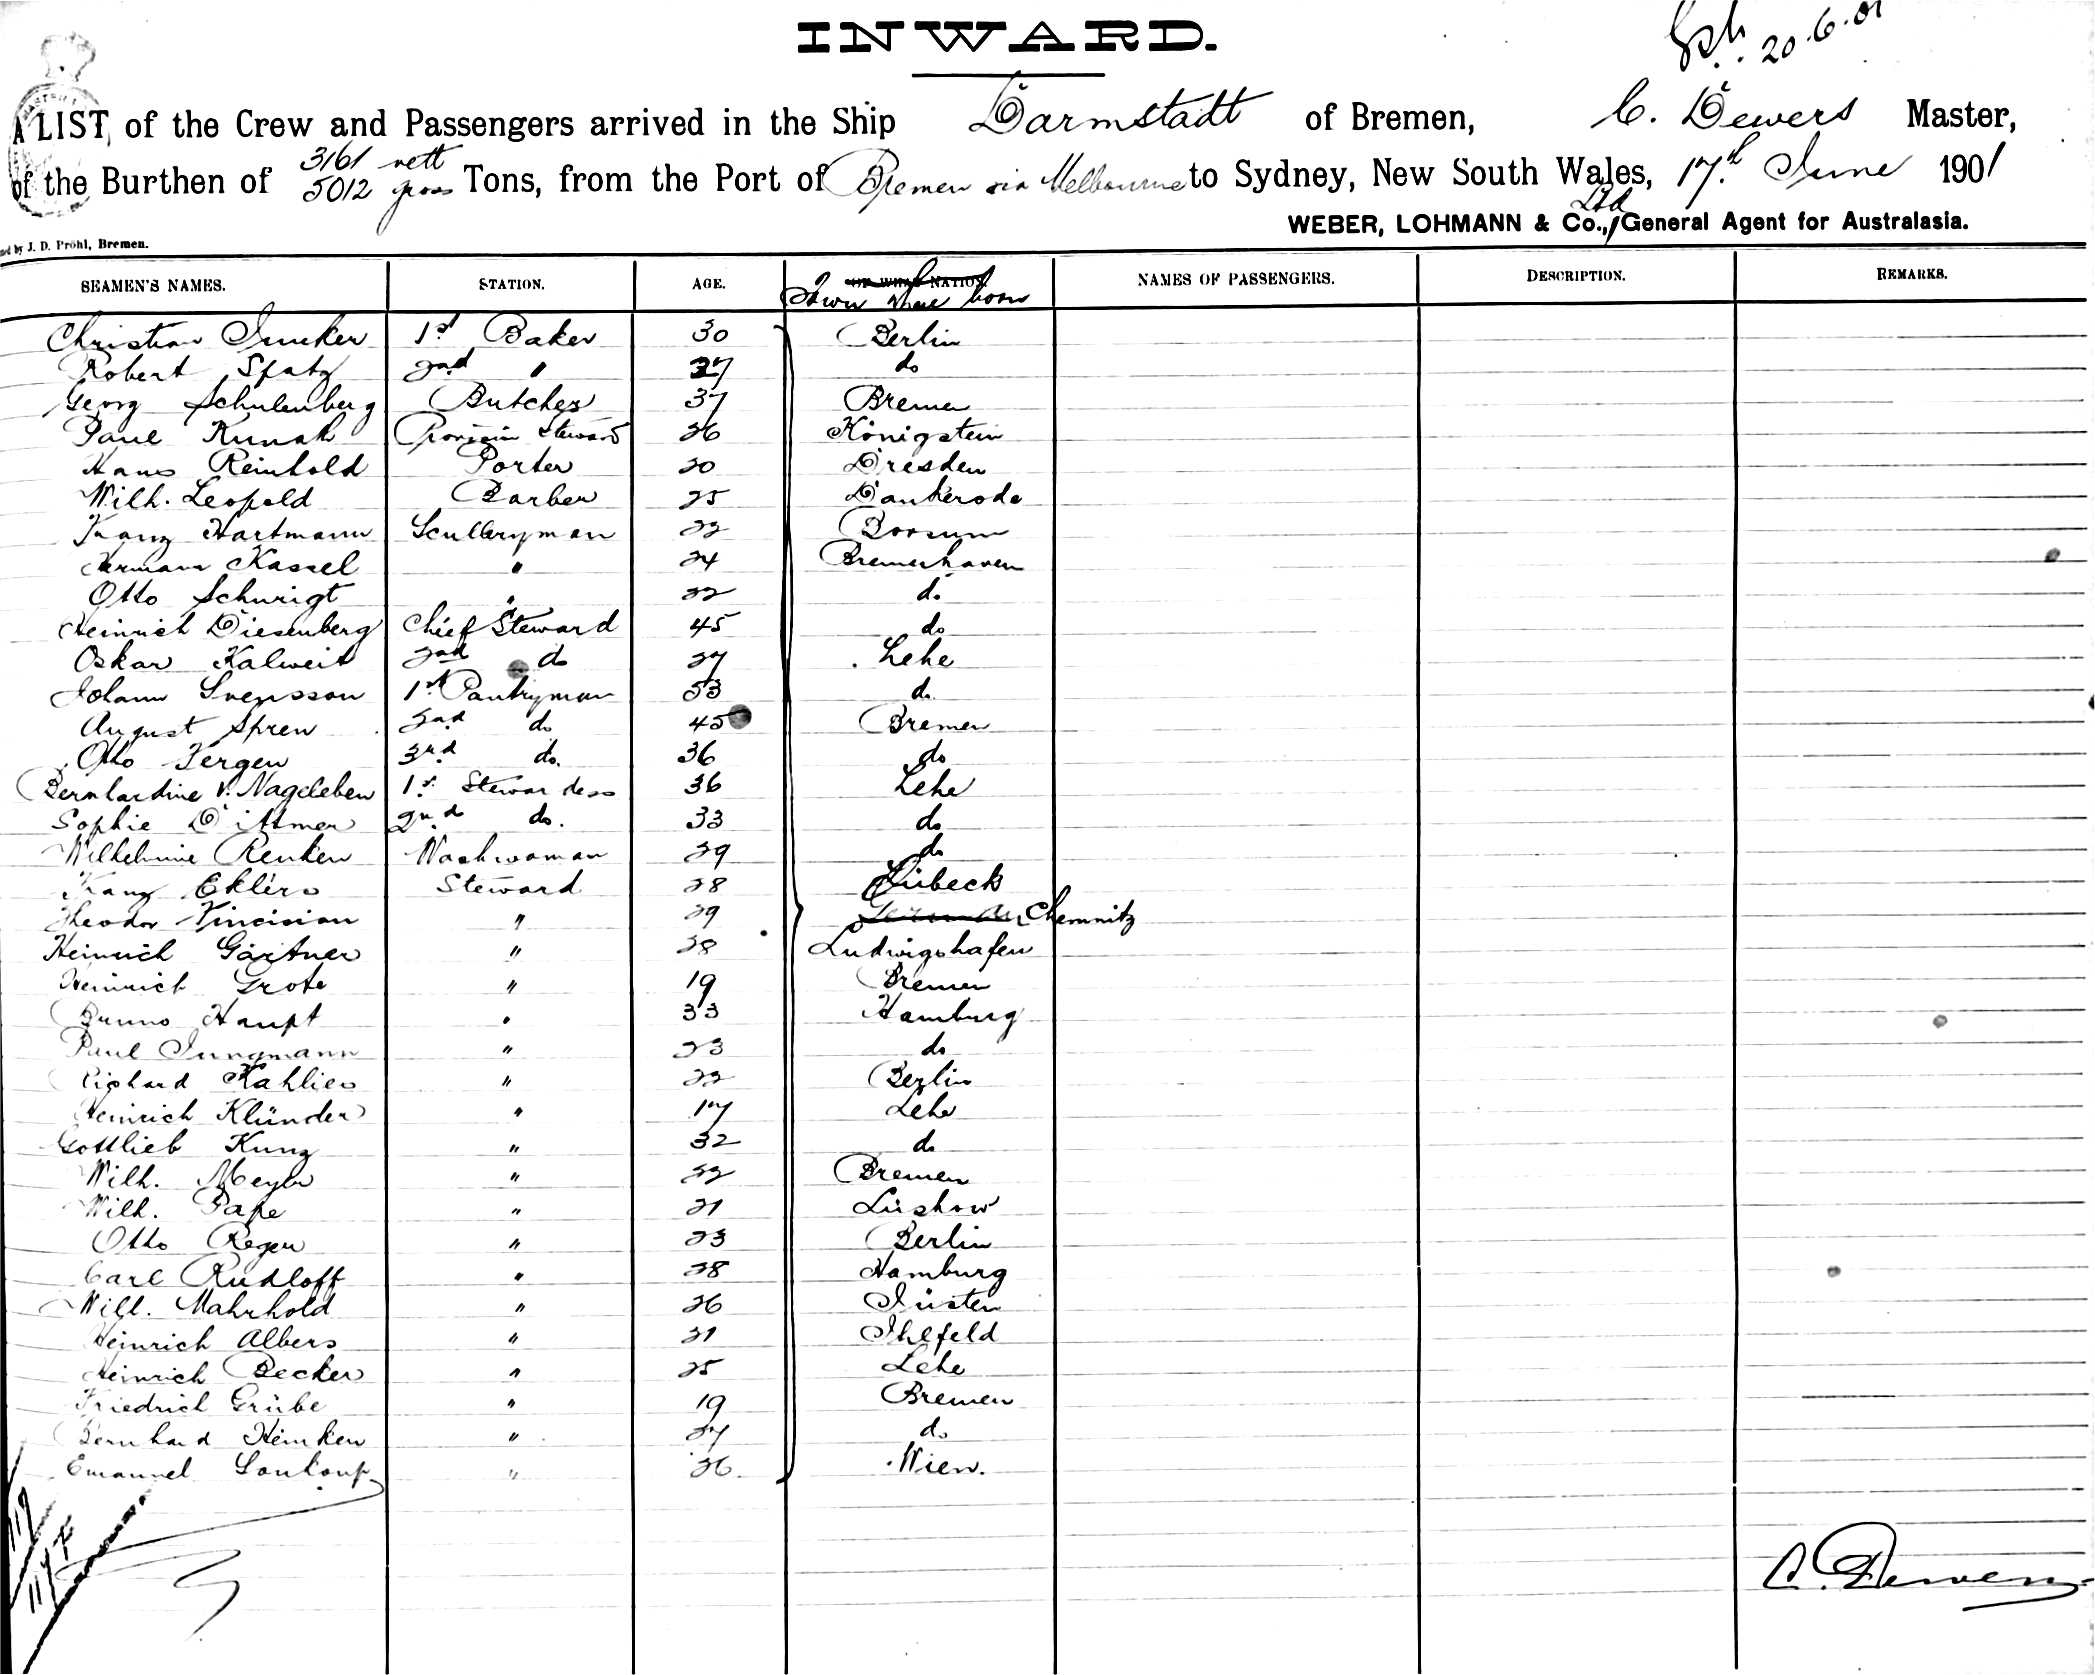 INWARD.
20.6.01
A LIST of the Crew and Passengers arrived in the Ship Darmstadt of Bremen, C. Dewers Master,
of the Burthen of 3161 nett 5012 gross Tons, from the Port of Bremen via Melbourne to Sydney, New South Wales, 17th June 1901
WEBER, LOHMANN & Co., Ltd General Agent for Australasia.
by J. D. Pröhl, Bremen.
SEAMEN'S NAMES. STATION. AGE. OF WHAT NATION. Town where born NAMES OF PASSENGERS. DESCRIPTION. REMARKS.
Christian Juncker 1st Baker 30 Berlin
Robert Spatz 2nd " 27 do
Georg Schulenberg Butcher 37 Bremen
Paul Kunath Provision Steward 26 Königstein
Hans Reinhold Porter 20 Dresden
Wilh. Leopold Barber 25 Dankerode
Franz Hartmann Sculleryman 22 Borsum
Herman Kassel " 24 Bremerhaven
Otto Schurigt " 22 do
Heinrich Diesenberg Chief Steward 45 do
Oskar Kalweit 2nd do 27 Lehe
Johann Svensson 1st Pantryman 53 do
August Spren 2nd do 45 Bremen
Otto Jergen 3rd do. 36 do
Bernhardine v. Nageleben 1st Stewardess 36 Lehe
Sophie Dittmer 2nd do. 33 do
Wilhelmine Renken Washwoman 29 do
Franz Ehlers Steward 28 Lübeck
Theodor Vincision " 29 Chemnitz
Heinrich Gärtner " 28 Ludwigshafen
Heinrich Grote " 19 Bremen
Bruno Haupt " 33 Hamburg
Paul Jungmann " 23 do
Richard Kahlies " 22 Berlin
Heinrich Klünder " 17 Lehe
Gottlieb Kunz " 32 do
Wilh. Meyer " 22 Bremen
Wilh. Pape " 21 Lüshow
Otto Regen " 23 Berlin
Carl Rudloff " 28 Hamburg
Will. Mahrhold " 26 Güsten
Heinrich Albers " 21 Ihlfeld
Heinrich Becker " 25 Lehe
Friedrich Grübe " 19 Bremen
Bernhard Heinken " 27 do
Emanuel Soukoup " 26 Wien.
C. Dewers